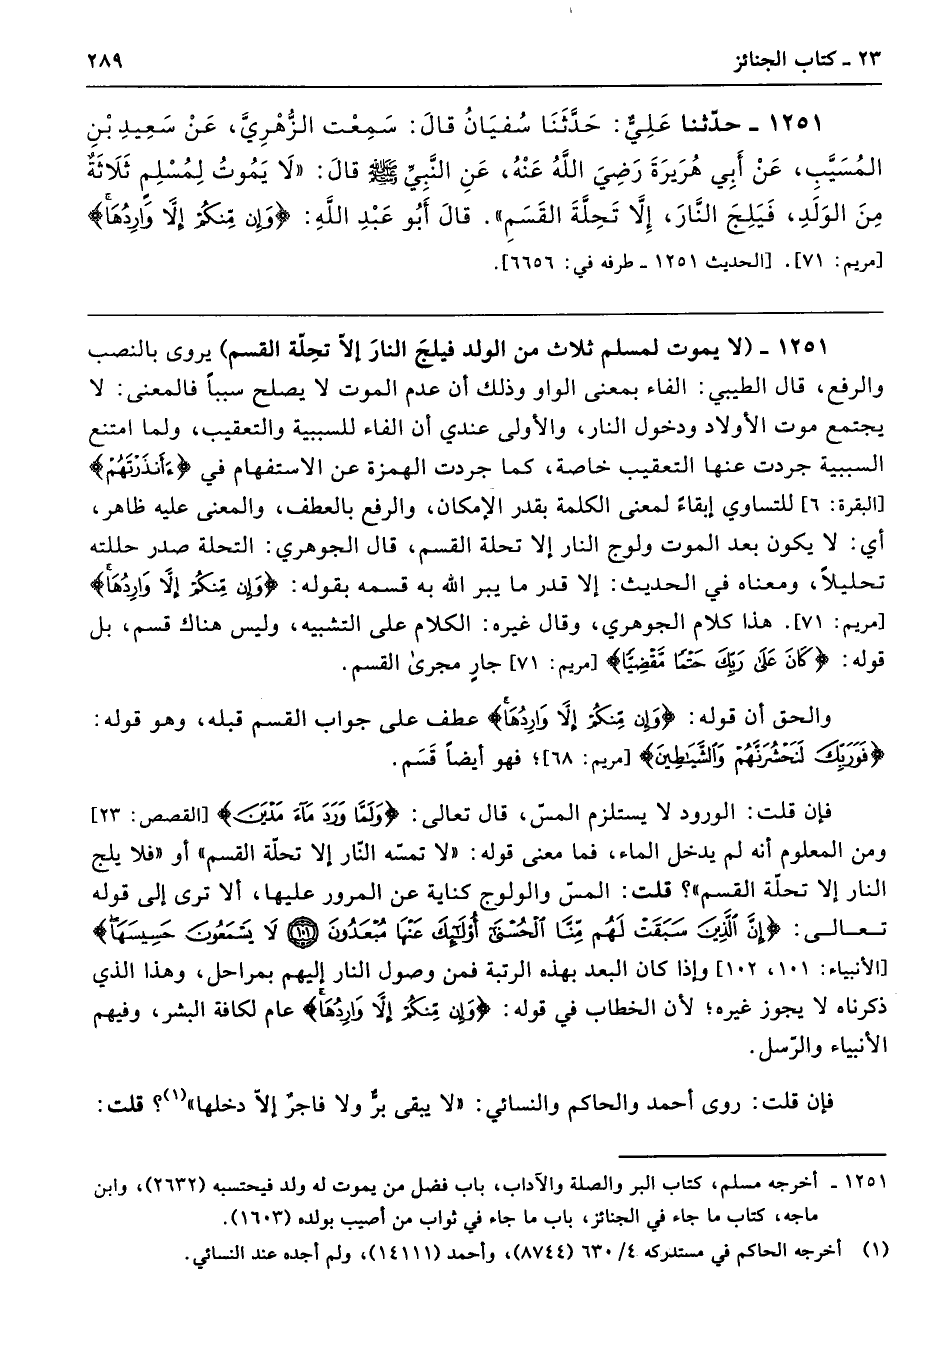 ٢٣ ـ كتاب الجنائز ٢٨٩
١٢٥١ ـ حدّثنا عَلِيٌّ: حَدَّثَنَا سُفيَانُ قالَ: سَمِعْت الزُّهْرِيَّ، عَنْ سَعِيدِ بْنِ
المُسَيَّبِ، عَنْ أَبِي هُرَيرَةَ رَضِيَ اللَّهُ عَنْهُ، عَنِ النَّبِيِّ ﷺ قالَ: «لَا يَمُوتُ لِمُسْلِمٍ ثَلَاثَةٌ
مِنَ الوَلَدِ، فَيَلِجَ النَّارَ، إِلَّا تَحِلَّةَ القَسَمِ». قالَ أَبُو عَبْدِ اللَّهِ: ﴿وَإِن مِّنكُمْ إِلَّا وَارِدُهَاۚ﴾
[مريم: ٧١]. [الحديث ١٢٥١ ـ طرفه في: ٦٦٥٦].
١٢٥١ ـ (لا يموت لمسلم ثلاث من الولد فيلجَ النارَ إلاّ تحِلّة القسم) يروى بالنصب
والرفع، قال الطيبي: الفاء بمعنى الواو وذلك أن عدم الموت لا يصلح سبباً فالمعنى: لا
يجتمع موت الأولاد ودخول النار، والأولى عندي أن الفاء للسببية والتعقيب، ولما امتنع
السببية جردت عنها التعقيب خاصة، كما جردت الهمزة عن الاستفهام في ﴿ءَأَنذَرْتَهُمْ﴾
[البقرة: ٦] للتساوي إبقاءً لمعنى الكلمة بقدر الإمكان، والرفع بالعطف، والمعنى عليه ظاهر،
أي: لا يكون بعد الموت ولوج النار إلا تحلة القسم، قال الجوهري: التحلة صدر حللته
تحليلاً، ومعناه في الحديث: إلا قدر ما يبر الله به قسمه بقوله: ﴿وَإِن مِّنكُمْ إِلَّا وَارِدُهَاۚ﴾
[مريم: ٧١]. هذا كلام الجوهري، وقال غيره: الكلام على التشبيه، وليس هناك قسم، بل
قوله: ﴿كَانَ عَلَىٰ رَبِّكَ حَتْمًا مَّقْضِيًّا﴾ [مريم: ٧١] جارٍ مجرىٰ القسم.
والحق أن قوله: ﴿وَإِن مِّنكُمْ إِلَّا وَارِدُهَاۚ﴾ عطف على جواب القسم قبله، وهو قوله:
﴿فَوَرَبِّكَ لَنَحْشُرَنَّهُمْ وَالشَّيَٰطِينَ﴾ [مريم: ٦٨]؛ فهو أيضاً قَسَم.
فإن قلت: الورود لا يستلزم المسّ، قال تعالى: ﴿وَلَمَّا وَرَدَ مَآءَ مَدْيَنَ﴾ [القصص: ٢٣]
ومن المعلوم أنه لم يدخل الماء، فما معنى قوله: «لا تمسّه النّار إلا تحلّة القسم» أو «فلا يلج
النار إلا تحلّة القسم»؟ قلت: المسّ والولوج كناية عن المرور عليها، ألا ترى إلى قوله
تعالى: ﴿إِنَّ ٱلَّذِينَ سَبَقَتْ لَهُم مِّنَّا ٱلْحُسْنَىٰٓ أُو۟لَٰٓئِكَ عَنْهَا مُبْعَدُونَ ١٠١ لَا يَسْمَعُونَ حَسِيسَهَاۖ﴾
[الأنبياء: ١٠١، ١٠٢] وإذا كان البعد بهذه الرتبة فمن وصول النار إليهم بمراحل، وهذا الذي
ذكرناه لا يجوز غيره؛ لأن الخطاب في قوله: ﴿وَإِن مِّنكُمْ إِلَّا وَارِدُهَاۚ﴾ عام لكافة البشر، وفيهم
الأنبياء والرّسل.
فإن قلت: روى أحمد والحاكم والنسائي: «لا يبقى برٌّ ولا فاجرٌ إلاّ دخلها»(١)؟ قلت:
١٢٥١ ـ أخرجه مسلم، كتاب البر والصلة والآداب، باب فضل من يموت له ولد فيحتسبه (٢٦٣٢)، وابن
ماجه، كتاب ما جاء في الجنائز، باب ما جاء في ثواب من أصيب بولده (١٦٠٣).
(١) أخرجه الحاكم في مستدركه ٤/ ٦٣٠ (٨٧٤٤)، وأحمد (١٤١١١)، ولم أجده عند النسائي.